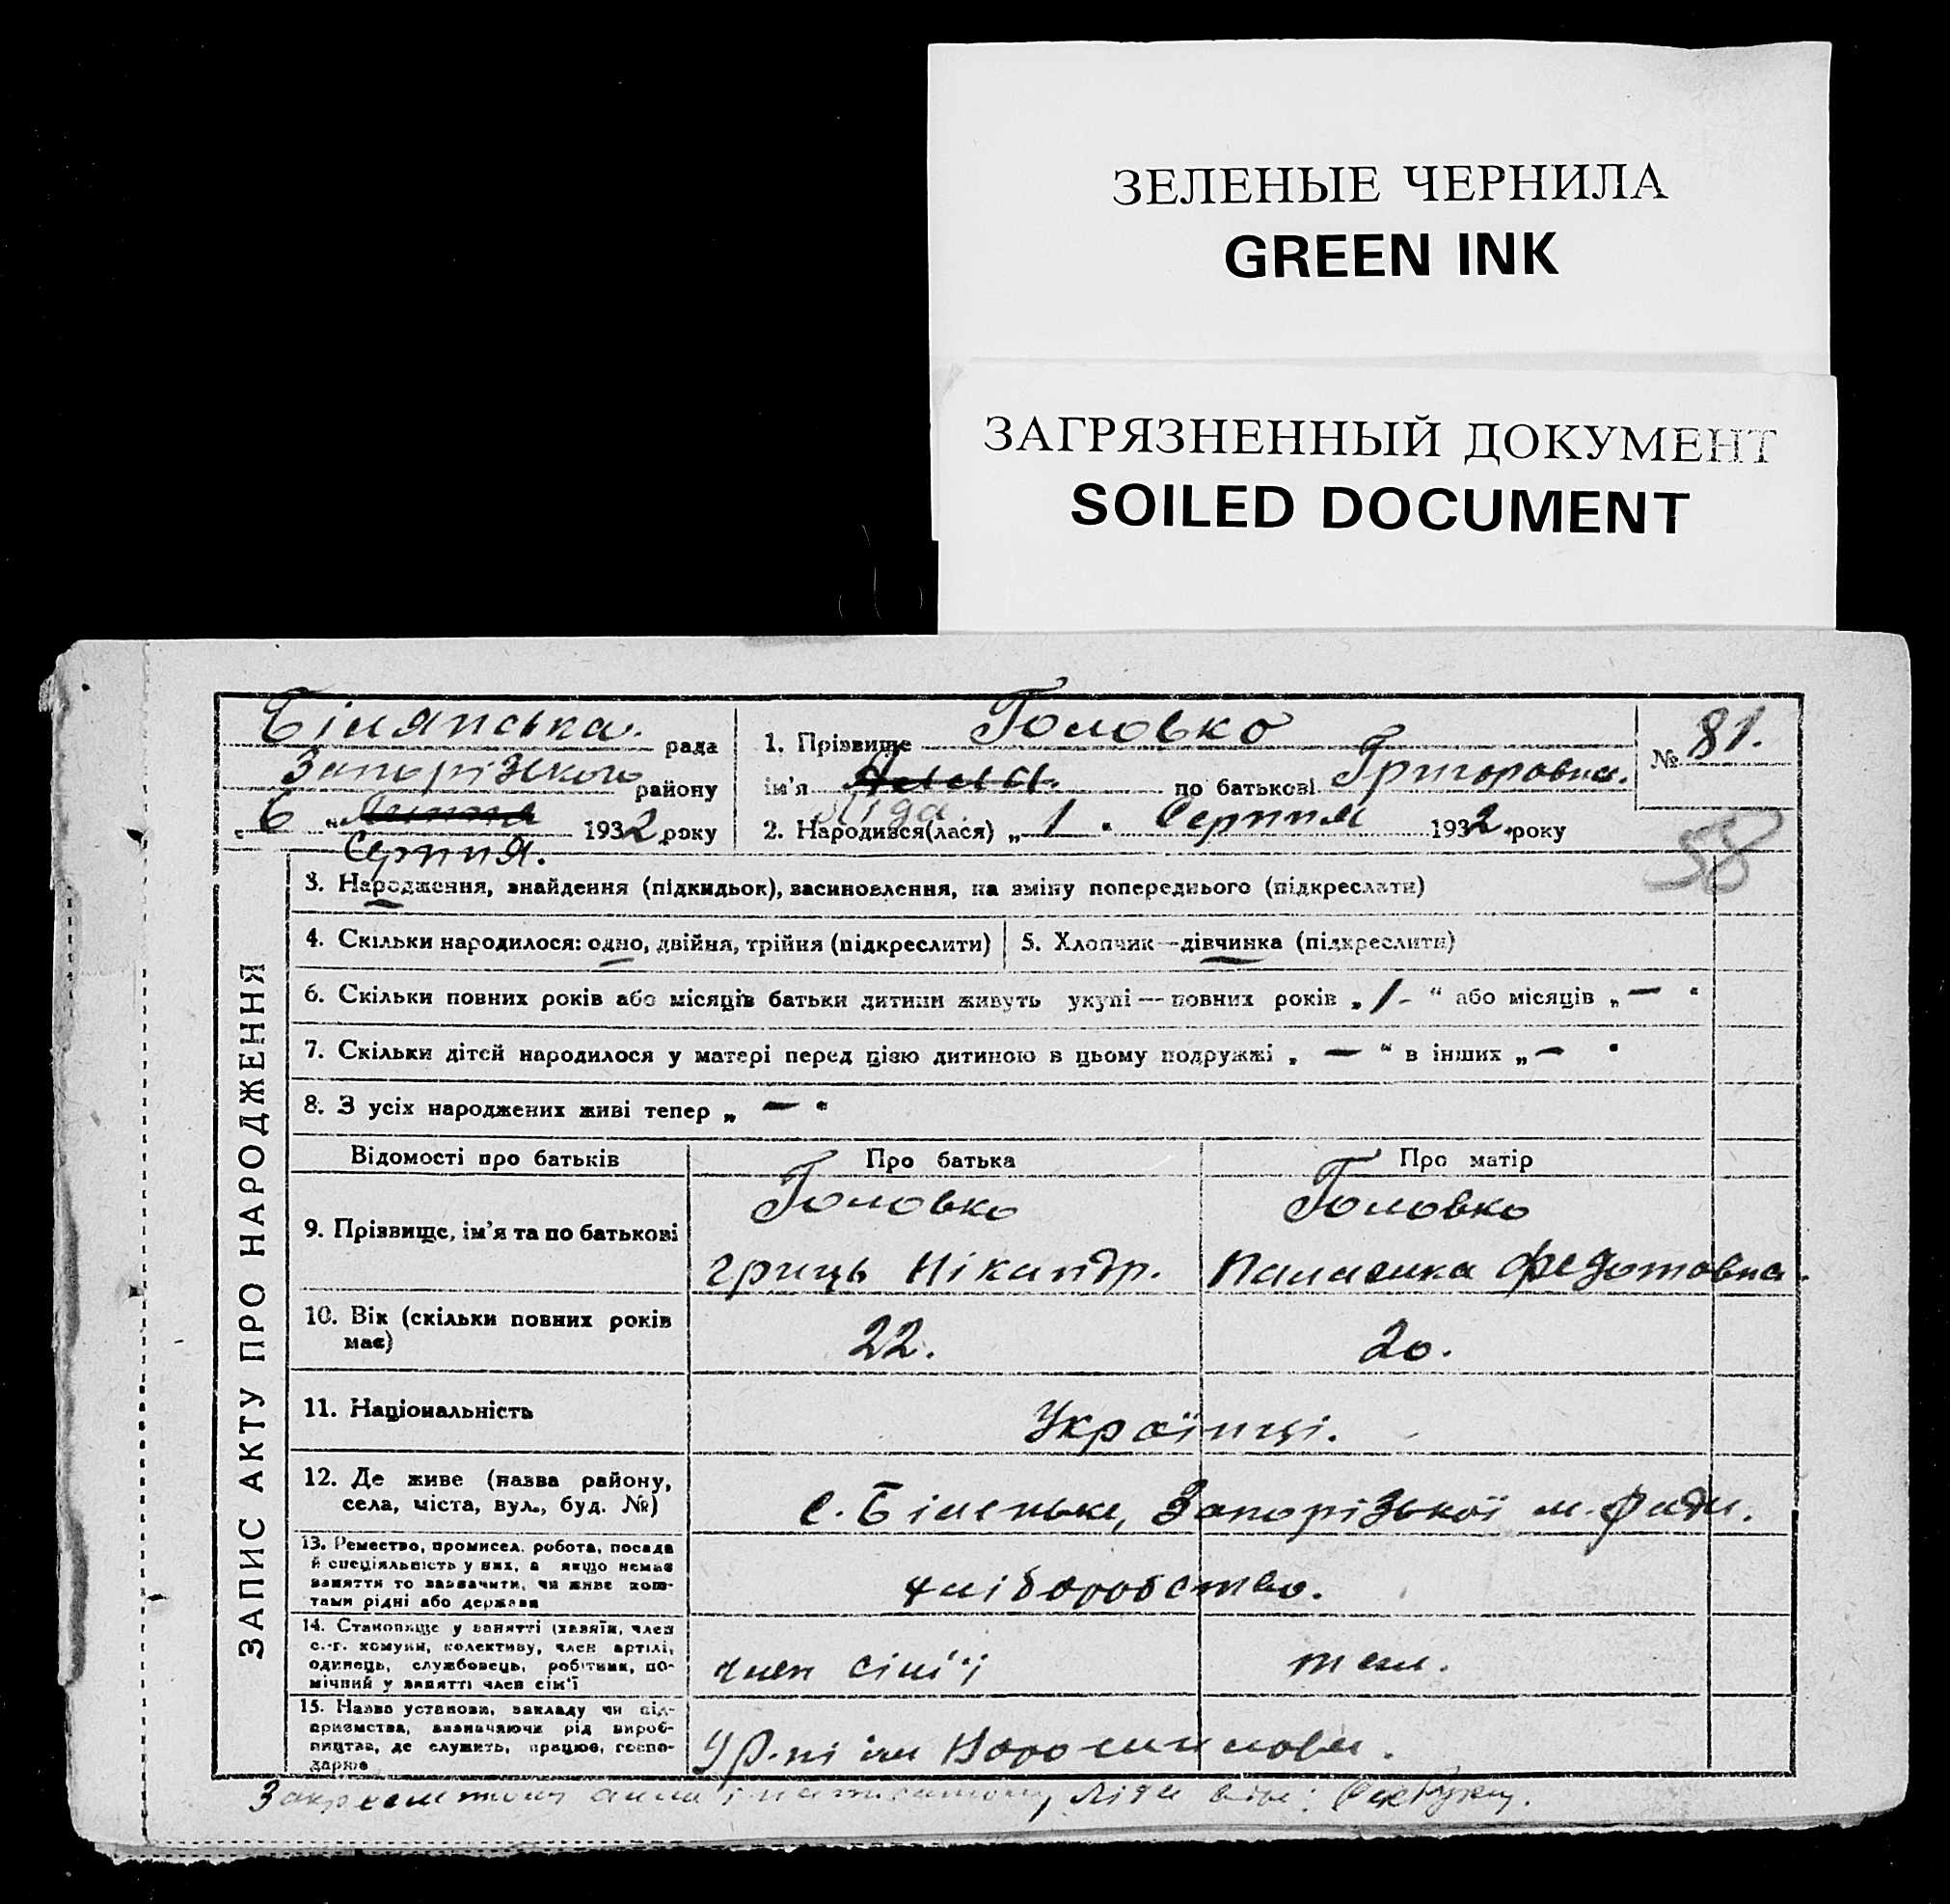 ЗЕЛЕНЫЕ ЧЕРНИЛА
GREEN INK
ЗАГРЯЗНЕННЫЙ ДОКУМЕНТ
SOILED DOCUMENT
Білянська. рада
Запорізького району
„ 6 " Липня 1932 року
Серпня.
1. Прізвище Головко
ім'я Анна. по батькові Григоровна.
Ліда.
2. Народився(лася) „ 1 " Серпня 1932 року
№ 81.
58
ЗАПИС АКТУ ПРО НАРОДЖЕННЯ
3. Народження, знайдення (підкидьок), васиновлення, на зміну попереднього (підкреслити)
4. Скільки народилося: одно, двійня, трійня (підкреслити)
5. Хлопчик—дівчинка (підкреслити)
6. Скільки повних років або місяців батьки дитини живуть укупі — повних років „ 1 - " або місяців „ — "
7. Скільки дітей народилося у матері перед цією дитиною в цьому подружжі „ — " в інших „ — "
8. З усіх народжених живі тепер „ — "
Відомості про батьків Про батька Про матір
9. Прізвище, ім'я та по батькові
Головко
Гриць Нікандр.
Головко
Палажка Федотовна.
10. Вік (скільки повних років має)
22.
20.
11. Національність
Українці.
12. Де живе (назва району,
села, міста, вул., буд. №)
с. Біленьке, Запорізької м. Ради.
13. Ремество, промисел, робота, посада
й спеціяльність у них, а якщо немає
заняття то зазначити, чи живе кош-
тами рідні або держави
хліборобство.
14. Становище у занятті (хазяїн, член
с.-г. комуни, колективу, член артілі,
одинець, службовець, робітник, по-
мічний у занятті член сім'ї
член сім'ї
теж.
15. Назва установи, закладу чи під-
приємства, зазначаючи рід вироб-
ництва, де служить, працює, госпо-
дарює
Закресленному Анна і написаному Ліда